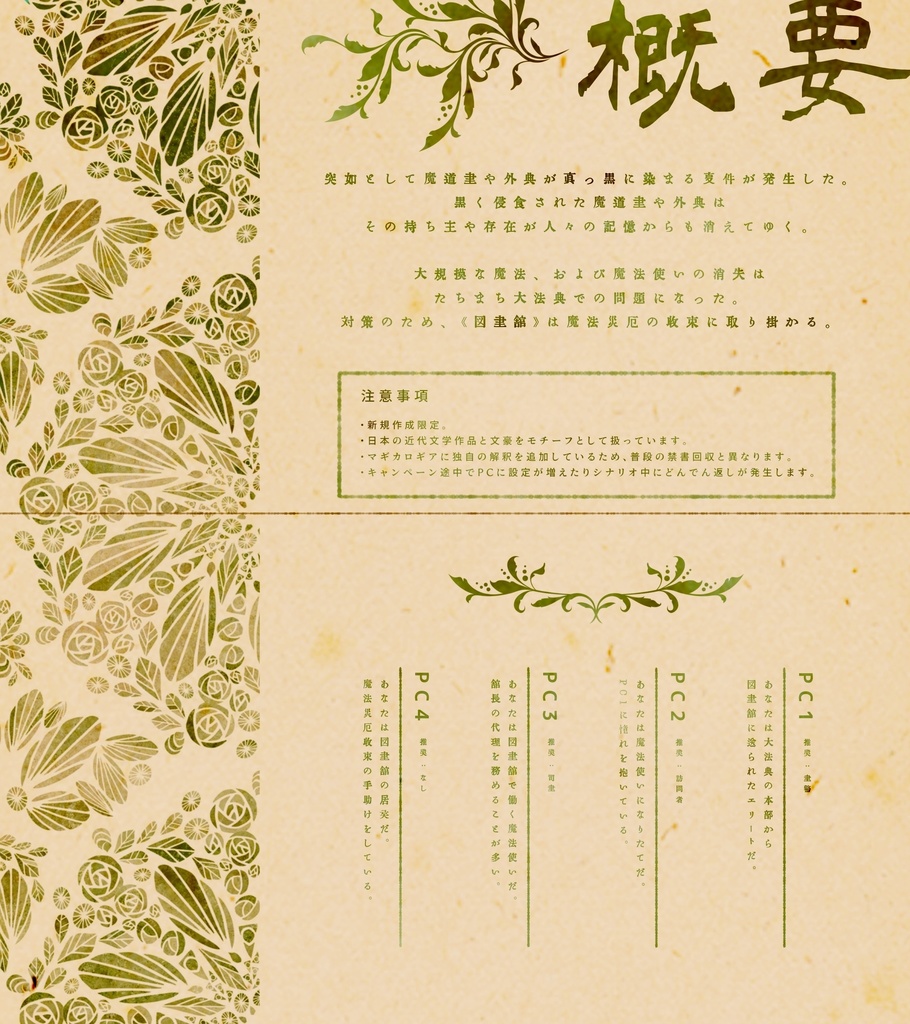 概要
突如として魔道書や外典が真っ黒に染まる事件が発生した。
黒く侵食された魔道書や外典は
その持ち主や存在が人々の記憶からも消えてゆく。
大規模な魔法、および魔法使いの消失は
たちまち大法典での問題になった。
対策のため、《図書館》は魔法災厄の収束に取り掛かる。
注意事項
・新規作成限定。
・日本の近代文学作品と文豪をモチーフとして扱っています。
・マギカロギアに独自の解釈を追加しているため、普段の禁書回収と異なります。
・キャンペーン途中でPCに設定が増えたりシナリオ中にどんでん返しが発生します。
PC1 推奨：書警
あなたは大法典の本部から
図書館に送られたエリートだ。
PC2 推奨：訪問者
あなたは魔法使いになりたてだ。
PC1に憧れを抱いている。
PC3 推奨：司書
あなたは図書館で働く魔法使いだ。
館長の代理を務めることが多い。
PC4 推奨：なし
あなたは図書館の居候だ。
魔法災厄収束の手助けをしている。